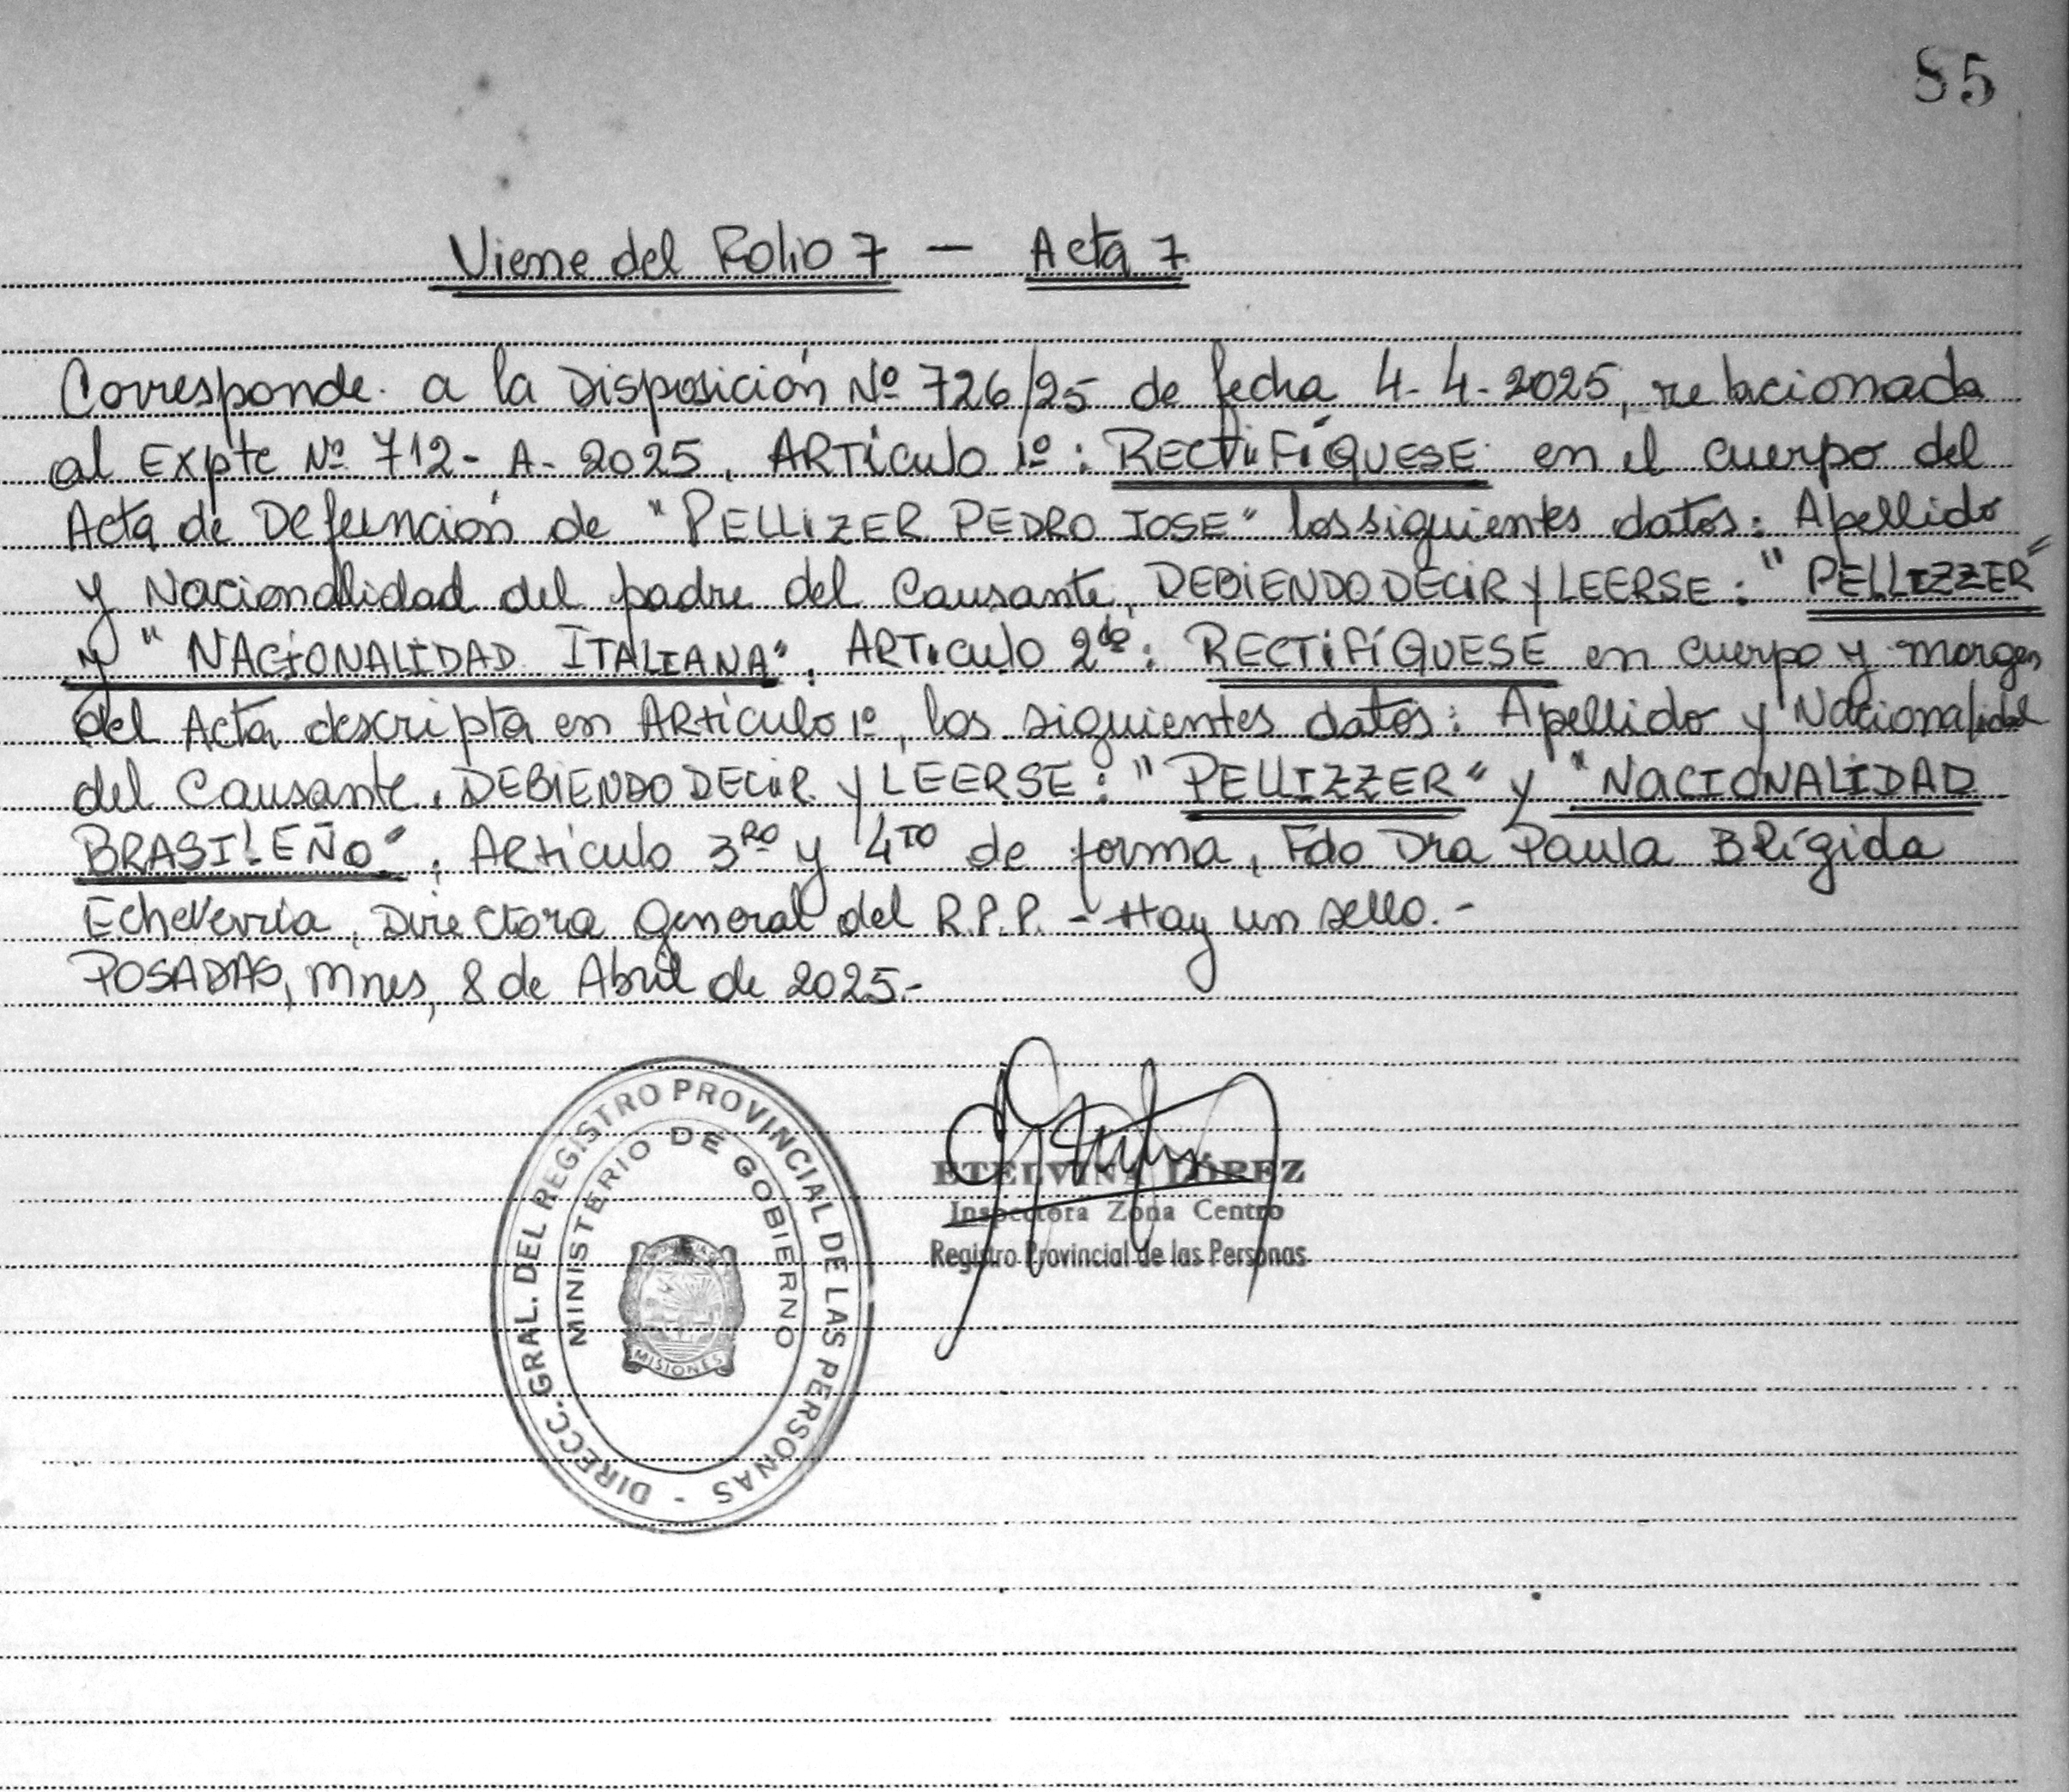 85
Viene del Folio 7 — Acta 7
Corresponde a la Disposición Nº 726/25 de fecha 4-4-2025, relacionada
al Expte Nº 712-A-2025, ARTículo 1º: RECTIFÍQUESE en el cuerpo del
Acta de Defunción de "PELLIZER PEDRO JOSE" los siguientes datos: Apellido
y Nacionalidad del padre del Causante, DEBIENDO DECIR y LEERSE: "PELLIZZER"
y "NACIONALIDAD ITALIANA". ARTículo 2do: RECTIFÍQUESE en cuerpo y margen
del Acta descripta en ARtículo 1º, los siguientes datos: Apellido y Nacionalidad
del Causante, DEBIENDO DECIR y LEERSE: "PELLIZZER" y "NACIONALIDAD
BRASILEÑO". Artículo 3RO y 4TO de forma, Fdo Dra Paula BRígida
Echeverría, Directora General del R.P.P. - Hay un sello.-
POSADAS, Mnes, 8 de Abril de 2025.-
DIRECC. GRAL. DEL REGISTRO PROVINCIAL DE LAS PERSONAS -
MINISTERIO DE GOBIERNO
MISIONES
ETELVINA LOPEZ
Inspectora Zona Centro
Registro Provincial de las Personas